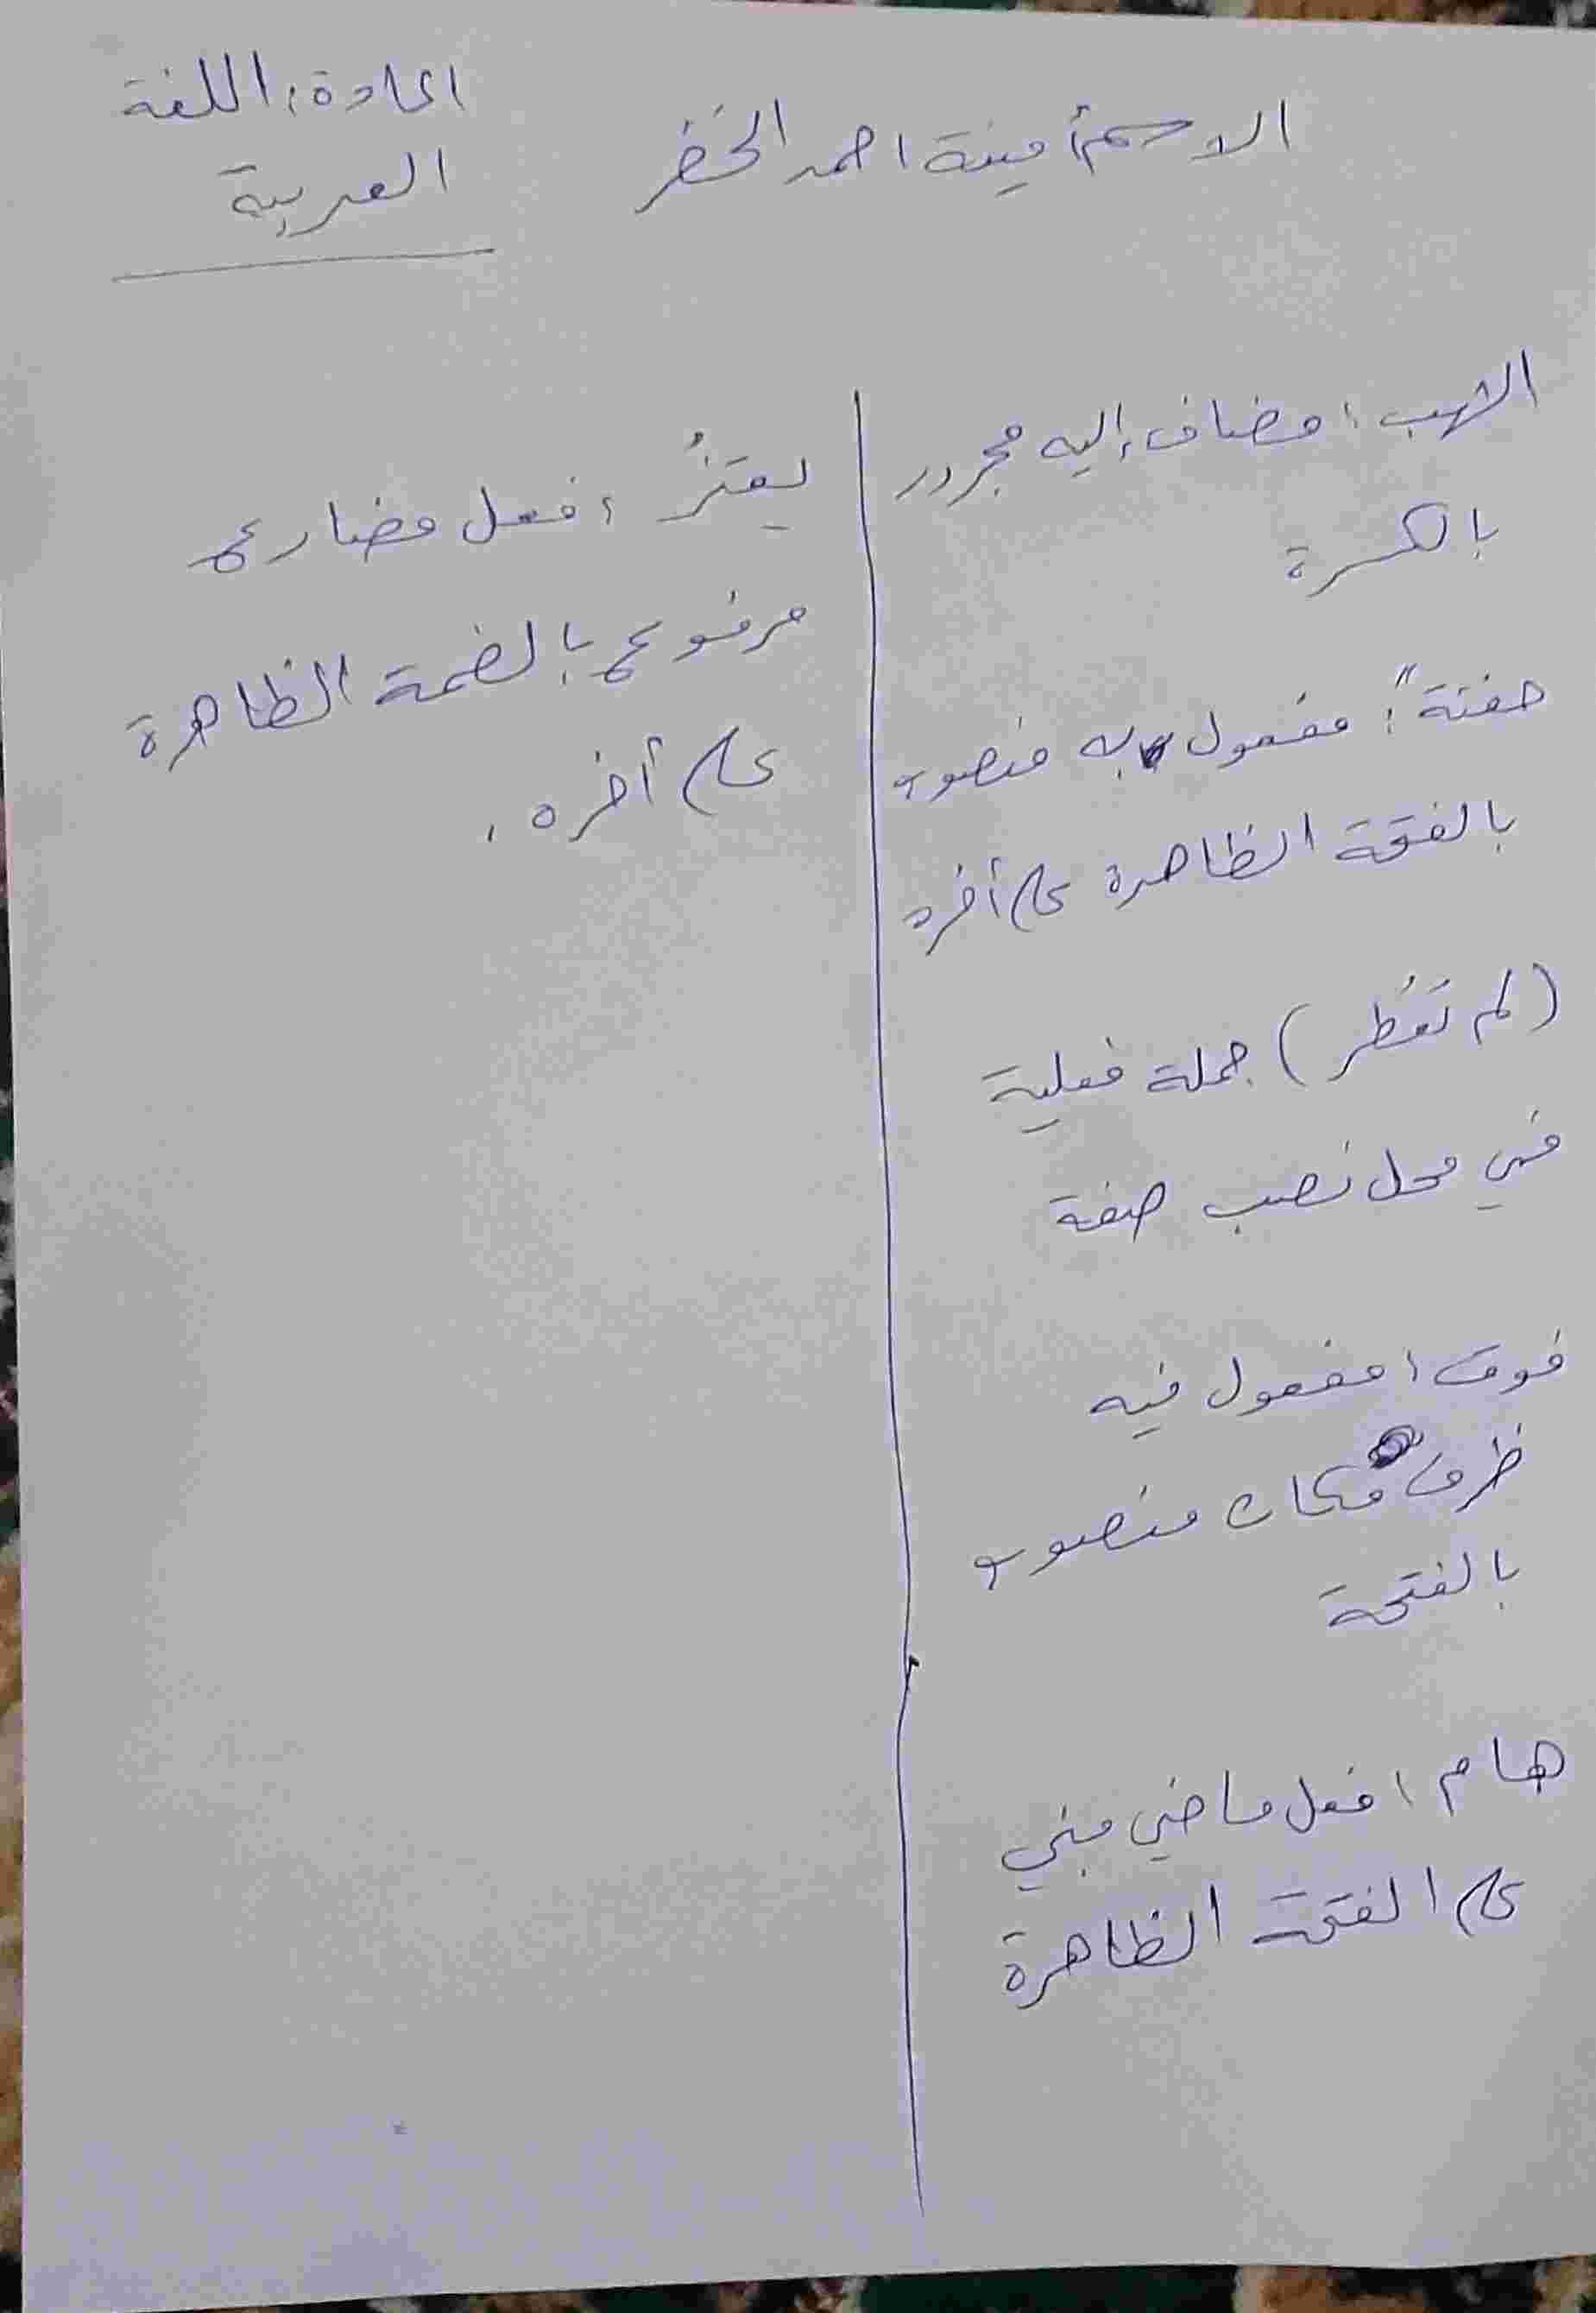 الاسم أمينة احمد الخضر
المادة: اللغة
العربية
الشهب: مضاف إليه مجرور
بالكسرة
حفنةً: مفعول به منصوب
بالفتحة الظاهرة على أخره
(لم تُعَطر) جملة فعلية
في محل نصب صفة
فوق: مفعول فيه
ظرف مكان منصوب
بالفتحة
هام: فعل ماضي مبني
على الفتحة الظاهرة
يعتزُ: فعل مضارع
مرفوع بالضمة الظاهرة
على أخره.